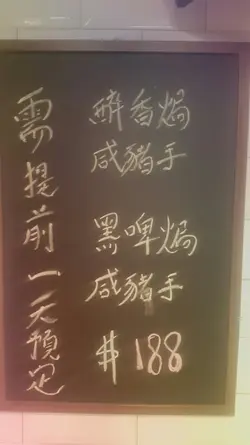 醉香焗
咸豬手
黑啤焗
咸豬手
$188
需提前一天預定